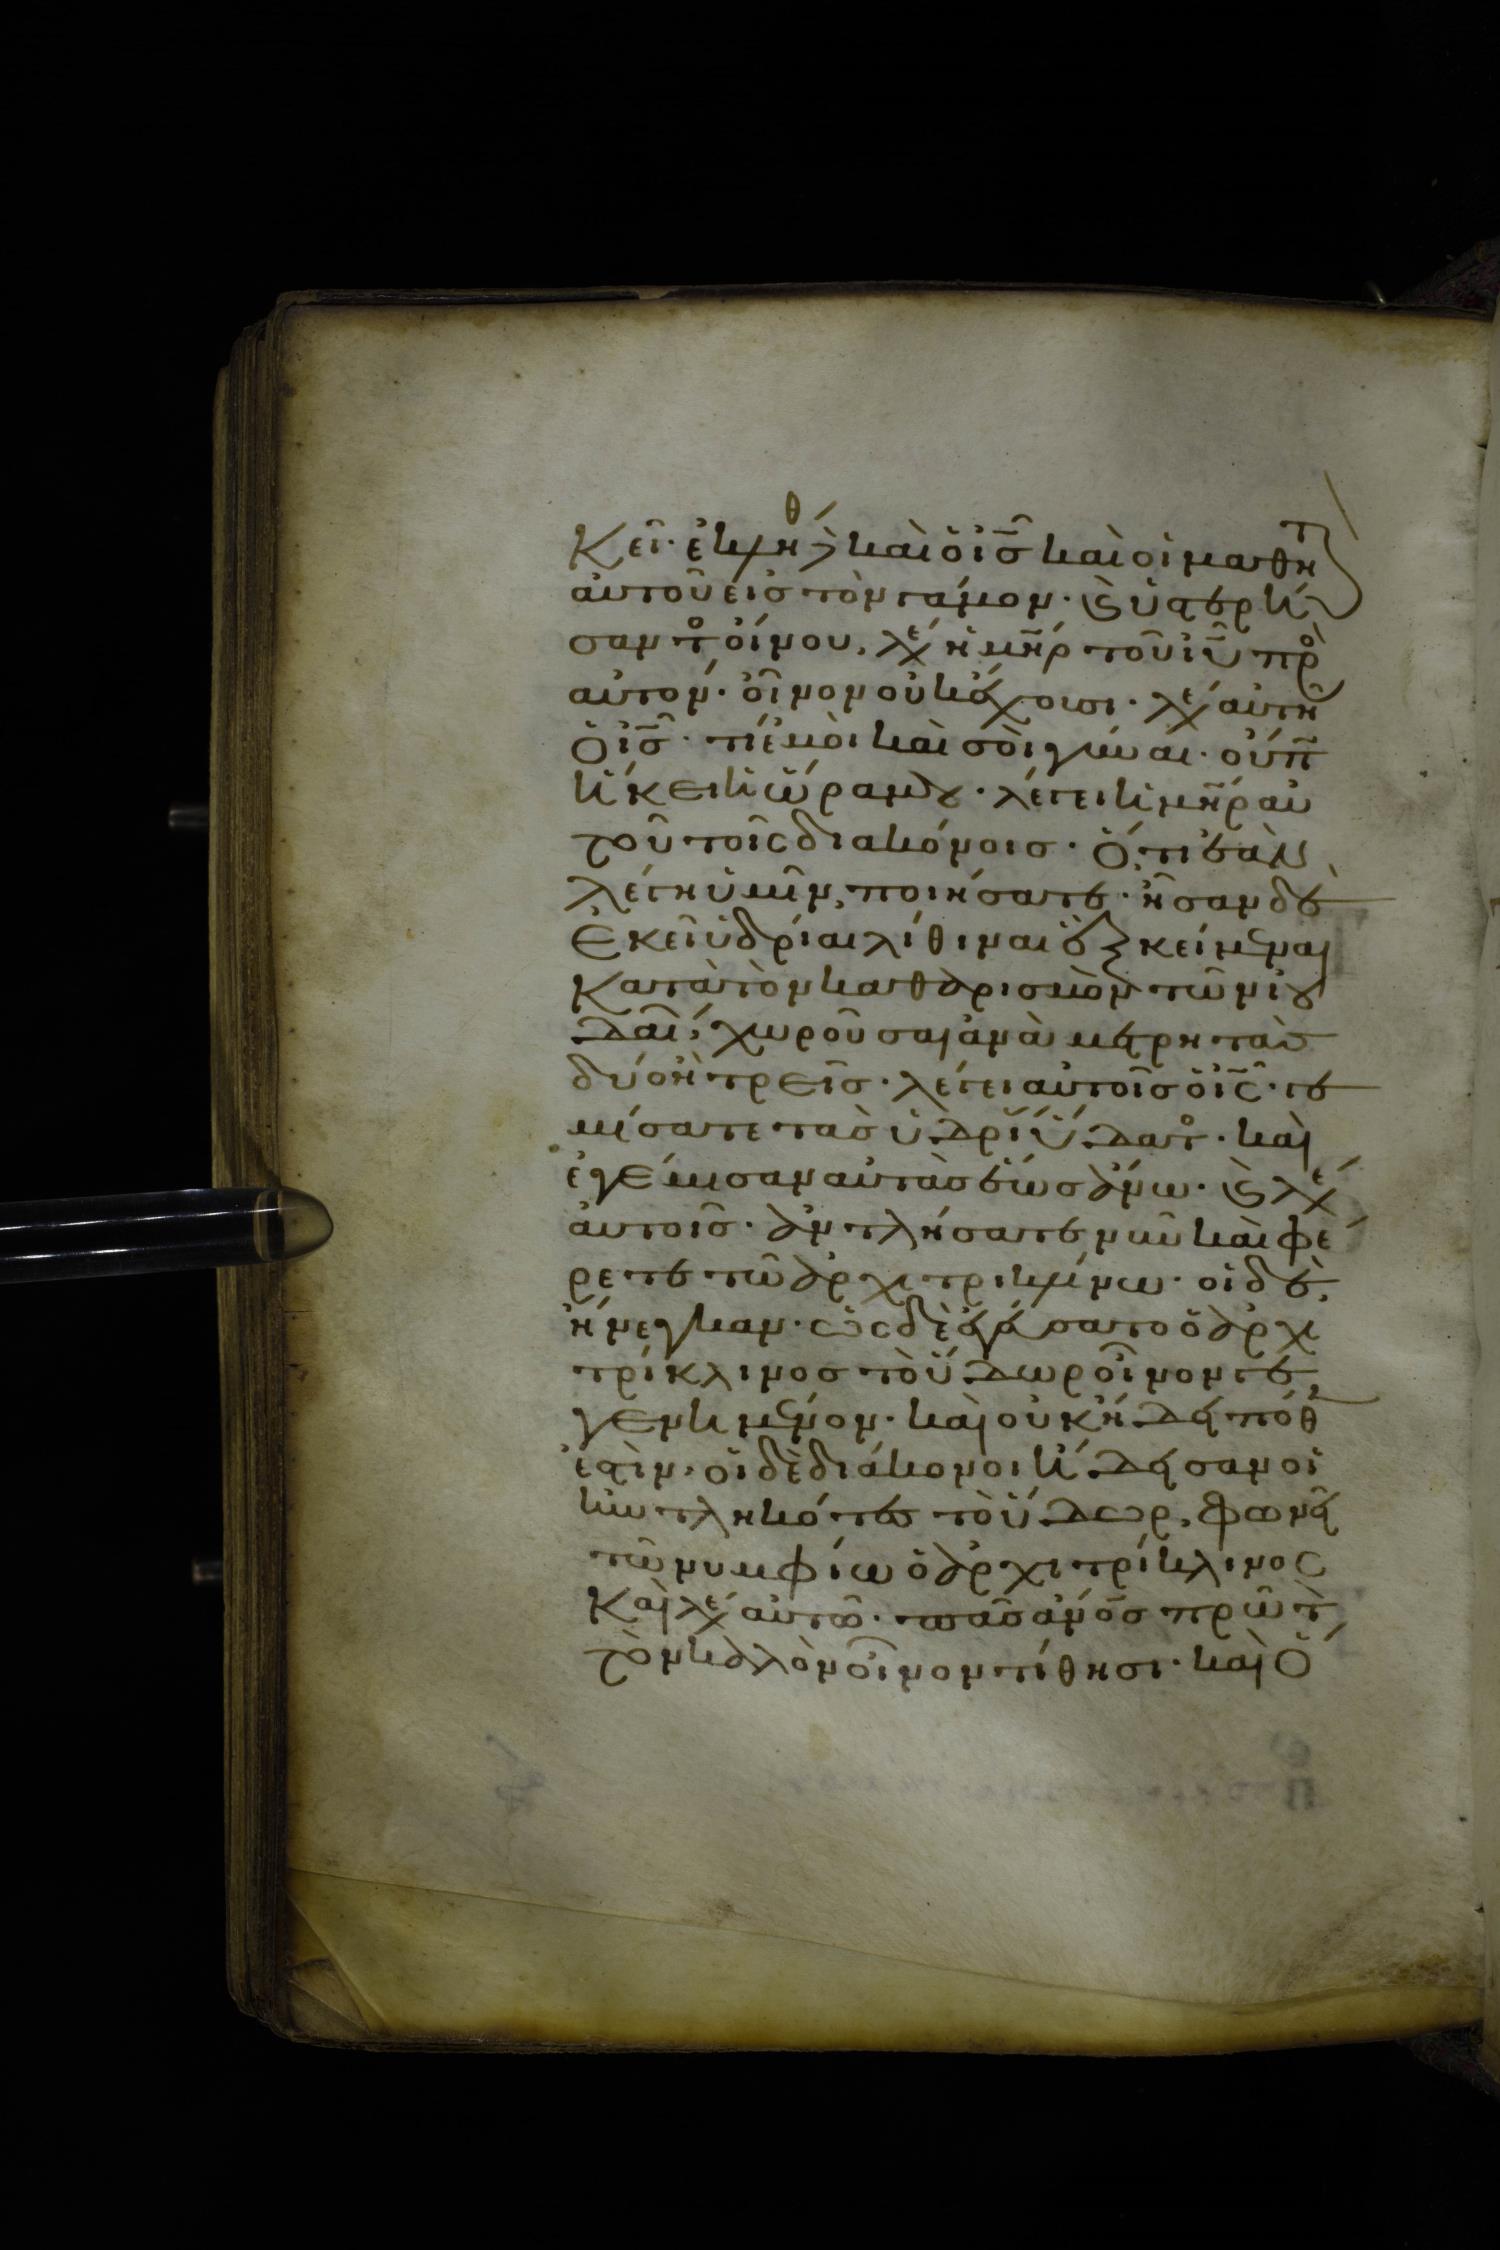 κεῖ· ἐκλήθ καὶ ὁ ἰς̅ καὶ οἱ μαθητ
αὐτοῦ εἰς τὸν γάμον· ϗ ὑστερή
σαντο οἴνου, λέγ ἡ μηρ τοῦ ἰυ̅ προ
αὐτόν· οἶνον οὐκ ἔχουσι· λέγ αὐτῆ
ὁ ἰς̅· τί ἐμοὶ καὶ σοὶ γύναι· οὔπ
ἥκει ἡ ὥρα μου· λέγει ἡ μηρ αὐ
τοῦ τοῖς διακόνοις· ὅ,τι ἐὰν
λέγη ὑμῖν, ποιήσατε· ἦσαν δὲ
ἐκεῖ ὑδρίαι λίθιναι ἓξ κείμεναι
κατὰ τὸν καθαρισμὸν τῶν ἰου
δαί, χωροῦσαι ἀνὰ μετρητὰς
δύο ἢ τρεῖς· λέγει αὐτοῖς ὁ ἰς̅· γε
μίσατε τὰς ὑδρί ὕδατο· καὶ
ἐγέμισαν αὐτὰς ἕως ἄνω· ϗ λέγ
αὐτοῖς· ἀντλήσατε νῦν καὶ φέ
ρετε τῶ ἀρχιτρικλίνω· οἱ δὲ,
ἤνεγκαν· ὡς δὲ ἐγεύσατο ὁ ἀρχι
τρίκλινος τὸ ὕδωρ οἶνον γε
γενημένον· καὶ οὐκ ἤδει πόθ
ἐστιν, οἱ δὲ διάκονοι ἤδεισαν οἱ
ἠντληκότες τὸ ὕδωρ, φωνεῖ
τῶ νυμφίω ὁ ἀρχιτρίκλινος
καὶ λέγ αὐτῶ· πᾶς ἀνος̅ πρῶτ
τὸν καλὸν οἶνον τίθησι· καὶ ὅ